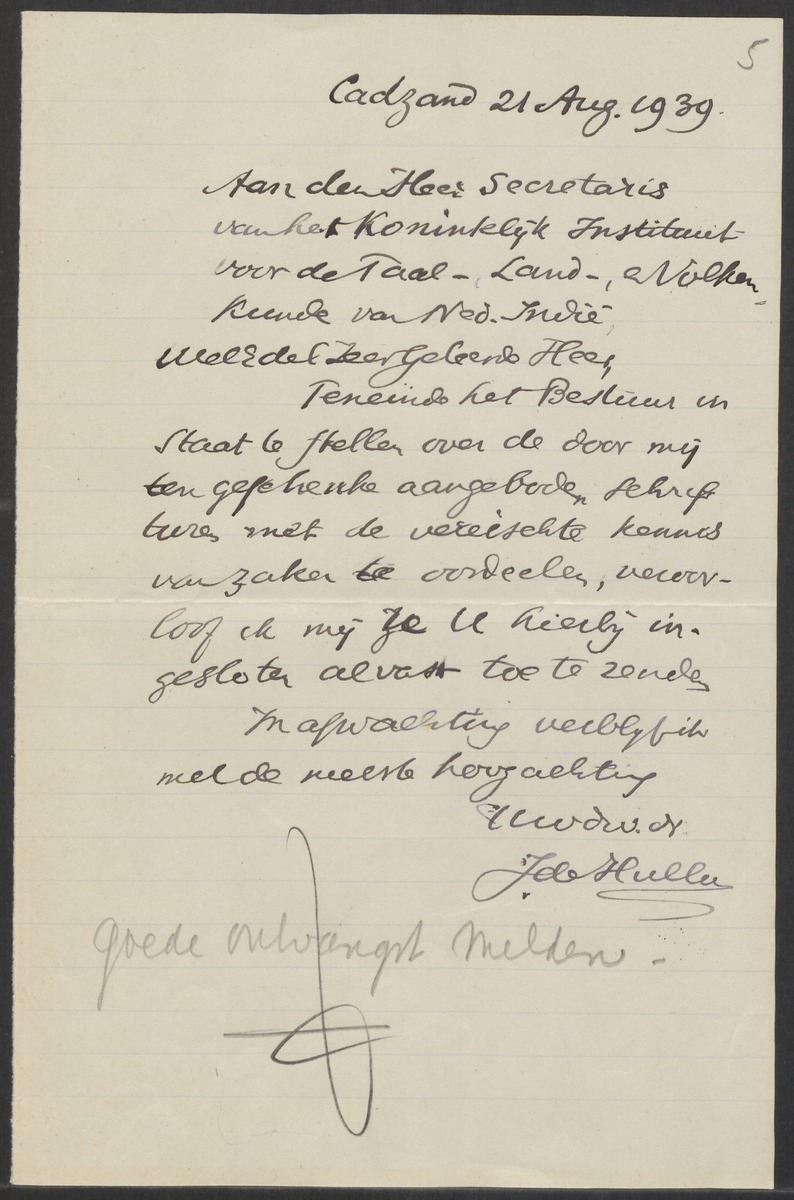 5
Cadzand 21 Aug. 1939.
Aan den Heer Secretaris
van het Koninklijk Instituut
voor de Taal-, Land-, en Volken-
kunde van Ned. Indië,
WelEdelZeerGeleerde Heer,
Teneinde het Bestuur in
staat te stellen over de door mij
ten geschenke aangeboden schrif
turen met de vereischte kennis
van zaken te oordeelen, veroor-
loof ik mij ze U hierbij in-
gesloten alvast toe te zenden
In afwachting verblijf ik
met de meeste hoogachting
Uw dw. dr
J de Hullu
goede ontvangst melden.